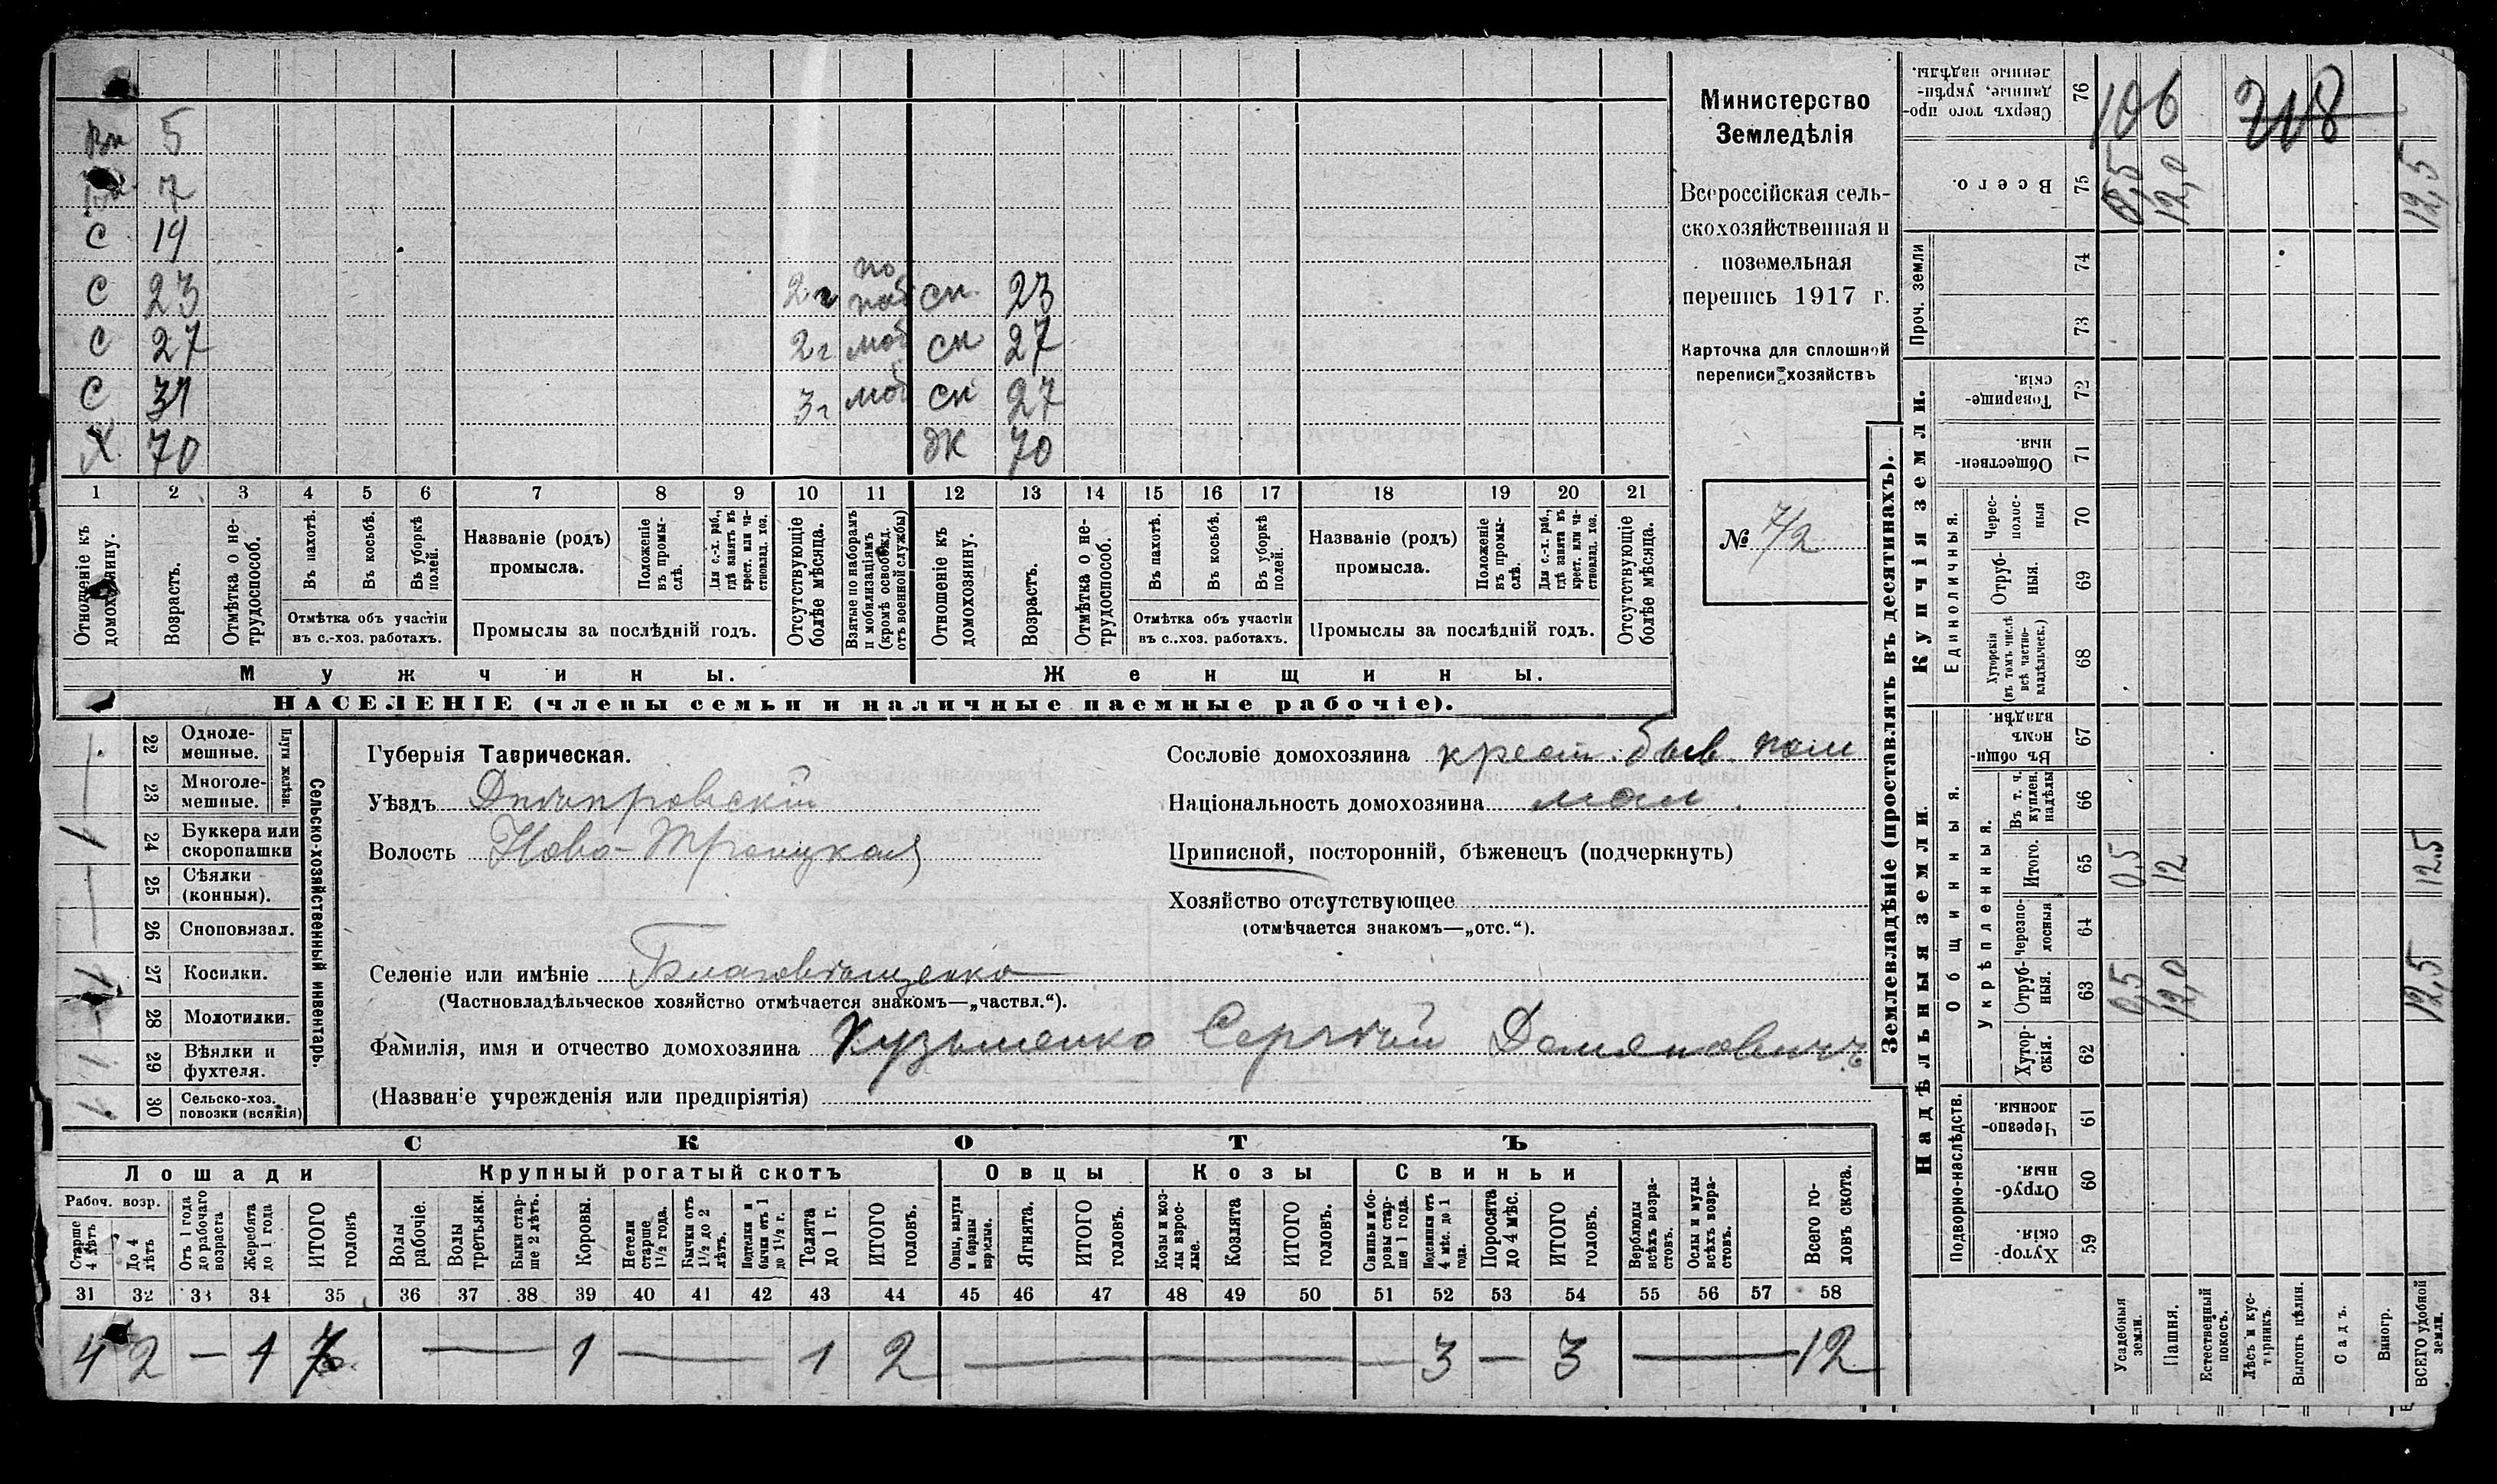 5
7
С 19
С 23 2 г по моб сн. 23
С 27 2 г моб сн 27
С 31 3 г моб сн 27
Х 70 дж 70
1 2 3 4 5 6 7 8 9 10 11 12 13 14 15 16 17 18 19 20 21
Отношеніе къ домохозяину.
Возрастъ.
Отмѣтка о нетрудоспособ.
Въ пахотѣ.
Въ косьбѣ.
Въ уборкѣ полей.
Отмѣтка объ участіи
въ с.-хоз. работахъ.
Названіе (родъ)
промысла.
Положеніе въ промыслѣ.
Для с.-х. раб., гдѣ занятъ въ крест. или частновлад. хоз.
Промыслы за послѣдній годъ.
Отсутствующіе болѣе мѣсяца.
Взятые по наборамъ и мобилизаціямъ (кромѣ освобожд. отъ военной службы)
Отношеніе къ домохозяину.
Возрастъ.
Отмѣтка о нетрудоспособ.
Въ пахотѣ.
Въ косьбѣ.
Въ уборкѣ полей.
Отмѣтка объ участіи
въ с..хоз. работахъ.
Названіе (родъ)
промысла.
Положеніе въ промыслѣ.
Для с.-х. раб., гдѣ занята въ крест. или частновлад. хоз.
Промыслы за послѣдній годъ.
Отсутствующіе болѣе мѣсяца.
Мужчины.
Женщины.
НАСЕЛЕНІЕ (члены семьи и наличные наемные рабочіе).
Министерство
Земледѣлія
Всероссійская сель-
скохозяйственная и
поземельная
перепись 1917 г.
Карточка для сплошной
переписи хозяйствъ
№ 72
22 Одноле-
мешные.
23 Многоле-
мешные.
Плуги желѣзн.
24 Буккера или
скоропашки
1
25 Сѣялки
(конныя).
26 Сноповязал.
27 Косилки.
1
28 Молотилки.
29 Вѣялки и
фухтеля.
1
30 Сельско-хоз.
повозки (всякія)
1
Сельско-хозяйственный инвентарь.
Губернія Таврическая.
Уѣздъ Днѣпровскій
Волость Ново-Троицкая
Селеніе или имѣніе Благовѣщенка
(Частновладѣльческое хозяйство отмѣчается знакомъ—„частвл.“).
Фамилія, имя и отчество домохозяина Кузьменко Сергѣй Демяновичъ
(Названіе учрежденія или предпріятія)
Сословіе домохозяина крест. быв. пом
Національность домохозяина мал.
Приписной, посторонній, бѣженецъ (подчеркнуть)
Хозяйство отсутствующее
(отмѣчается знакомъ—„отс.“).
СКОТЪ
Лошади Крупный рогатый скотъ Овцы Козы Свиньи
Рабоч. возр.
Старше 4 лѣтъ
До 4 лѣтъ
Отъ 1 года до рабочаго возраста
Жеребята до 1 года
ИТОГО головъ
Волы рабочіе.
Волы третьяки.
Быки старше 2 лѣтъ.
Коровы.
Нетели старше 1½ года.
Бычки отъ 1½ до 2 лѣтъ.
Подтелки и бычки отъ 1 до 1½ г.
Телята до 1 г.
ИТОГО головъ.
Овцы, валухи и бараны взрослые.
Ягнята.
ИТОГО головъ.
Козы и козлы взрослые.
Козлята
ИТОГО головъ.
Свиньи и боровы старше 1 года.
Подсвинки отъ 4 мѣс. до 1 года.
Поросята до 4 мѣс.
ИТОГО головъ.
Верблюды всѣхъ возрастовъ.
Ослы и мулы всѣхъ возрастовъ.
Всего головъ скота.
31 32 33 34 35 36 37 38 39 40 41 42 43 44 45 46 47 48 49 50 51 52 53 54 55 56 57 58
4 2 — 1 7 — 1 — 1 2 — 3 — 3 — 12
Землевладѣніе (проставлять въ десятинахъ).
Надѣльныя земли.
Купчія земли.
Проч. земли
Подворно-наслѣдств.
Общинныя.
Укрѣпленныя.
Единоличныя.
Сверхъ того проданные, укрѣпленные надѣлы. 76 106 218
Всего. 75 0,5 12,0 12,5
74
73
Товарищескія. 72
Общественныя. 71
Черезполосныя 70
Отрубныя. 69
Хуторскія (въ томъ числѣ всѣ частновладѣльческ.) 68
Въ общинномъ владѣн. 67
Въ т. ч. куплен. надѣлы 66
Итого. 65 0,5 12 12.5
Черезполосныя 64
Отрубныя. 63 0,5 12,0 12,5
Хуторскія. 62
Черезполосныя. 61
Отрубныя. 60
Хуторскія. 59
Усадебныя земли.
Пашня.
Естественный покосъ.
Лѣсъ и кустарникъ.
Выгонъ цѣлин.
Садъ.
Виногр.
ВСЕГО удобной земли.